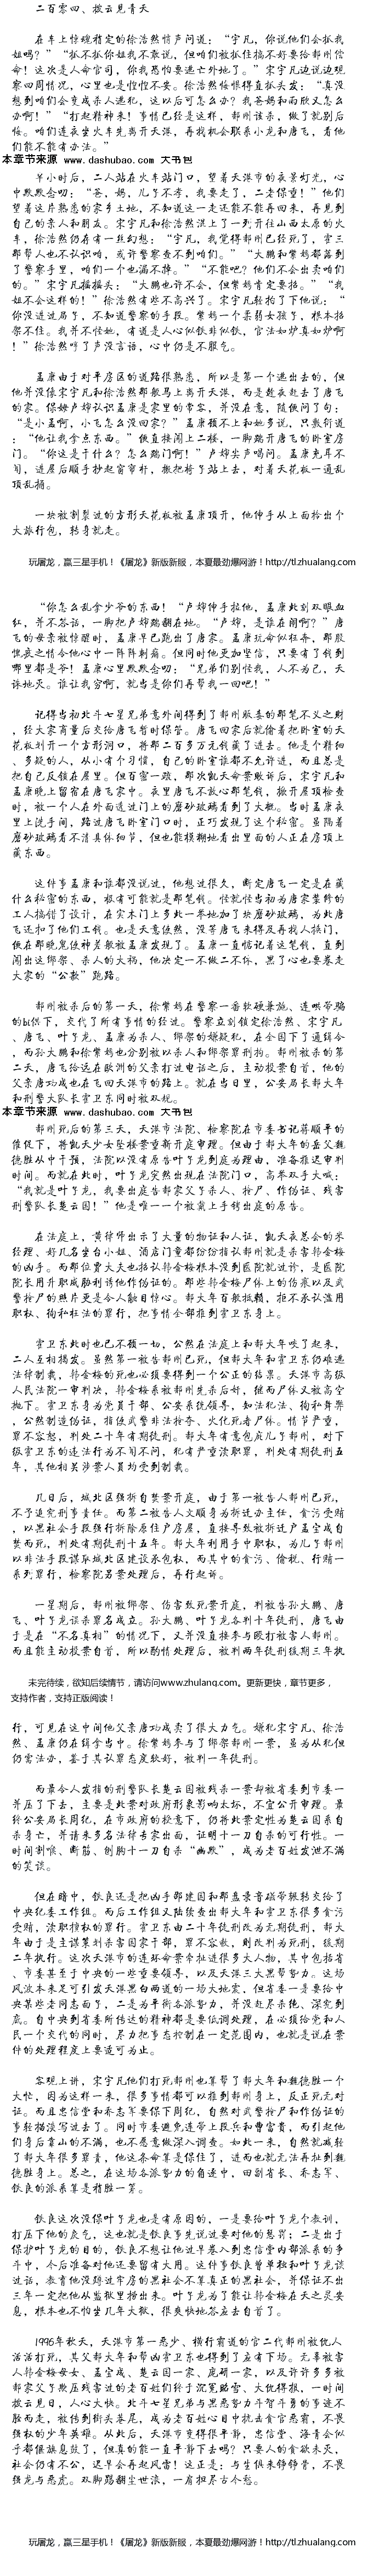 二百零四、拨云见青天
在车上惊魂稍定的徐浩然悄声问道："宇凡，你说他们会抓我
姐吗？" "抓不抓你姐我不敢说，但咱们被抓住搞不好要给郝州偿
命！这次是人命官司，你我恐怕要逃亡外地了。"宋宇凡边说边观
察四周情况，心里也是惶惶不安。徐浩然恼恨得直抓头发："真没
想到咱们会变成杀人逃犯，这以后可怎么办？我爸妈和雨欣又怎么
办啊！" "打起精神来！事情已经是这样，郝州该杀，做了就别后
悔。咱们连夜坐火车先离开天港，再找机会联系小龙和唐飞，看他
们能不能有办法。"
本章节来源 www.dashubao.com 大书包
半小时后，二人站在火车站门口，望着天港市的夜景灯光，心
中默默念叨："爸，妈，儿子不孝，我要走了，二老保重！"他们
望着这片熟悉的家乡土地，不知道这一走还能不能再回来，再见到
自己的亲人和朋友。宋宇凡和徐浩然混上了一列开往山西太原的火
车，徐浩然仍存有一丝幻想："宇凡，我觉得郝州已经死了，雷三
那帮人也不认识咱，或许警察查不到咱们。" "大鹏和常娟都落到
了警察手里，咱们一个也漏不掉。" "不能吧？他们不会出卖咱们
的。"宋宇凡摇摇头："大鹏也许不会，但常娟肯定要招。" "我
姐不会这样的！"徐浩然有些不高兴了。宋宇凡轻拍了下他说：
"你没进过局子，不知道警察的手段。常娟一个柔弱女孩子，根本招
架不住。我并不怪她，有道是人心似铁非似铁，官法如炉真如炉啊
！"徐浩然哼了声没言语，心中仍是不服气。
孟康由于对平房区的道路很熟悉，所以是第一个逃出去的，但
他并没像宋宇凡和徐浩然那般马上离开天港，而是趁夜赶去了唐飞
的家。保姆卢婶认识孟康是家里的常客，并没在意，随便问了句：
"是小孟啊，小飞怎么没回家？"孟康顾不上和她多说，只敷衍道
："他让我拿点东西。"便直接闯上二楼，一脚踹开唐飞的卧室房
门。"你这是干什么？怎么踹门啊！"卢婶尖声喝问。孟康充耳不
闻，进屋后顺手抄起窗帘杆，搬把椅子站上去，对着天花板一通乱
顶乱捅。
一块被割裂过的方形天花板被孟康顶开，他伸手从上面拎出个
大旅行包，转身就走。
玩屠龙，赢三星手机！《屠龙》新版新服，本夏最劲爆网游！http://tl.zhulang.com
"你怎么乱拿少爷的东西！"卢婶伸手拉他，孟康此刻双眼血
红，并不答话，一脚把卢婶踹翻在地。"卢婶，是谁在闹啊？"唐
飞的母亲被惊醒时，孟康早已跑出了唐家。孟康玩命似狂奔，那股
愧疚之情令他心中一阵阵刺痛。但同时他更加坚信，只要有了钱到
哪里都是爷！孟康心里默默念叨："兄弟们别怪我，人不为己，天
诛地灭。谁让我穷啊，就当是你们再帮我一回吧！"
记得当初北斗七星兄弟意外间得到了郝州贩毒的那笔不义之财
，经大家商量后交给唐飞暂时保管。唐飞回家后就偷着把卧室的天
花板划开一个方形洞口，将那二百多万元钱藏了进去。他是个精细
、多疑的人，从小有个习惯，自己的卧室谁都不允许进，而且总是
把自己反锁在屋里。但百密一疏，那次凯天命案败诉后，宋宇凡和
孟康晚上留宿在唐飞家中。夜里唐飞不放心那笔钱，掀开屋顶检查
时，被一个人在外面透过门上的磨砂玻璃看到了大概。当时孟康夜
里上洗手间，路过唐飞卧室门口时，正巧发现了这个秘密。虽隔着
磨砂玻璃看不清具体细节，但也能模糊地看出里面的人正在房顶上
藏东西。
这件事孟康和谁都没说过，他想过很久，断定唐飞一定是在藏
什么秘密的东西，极有可能就是那笔钱。怪就怪当初为唐家装修的
工人搞错了设计，在实木门上多此一举地加了块磨砂玻璃，为此唐
飞还扣了他们工钱。也是天意使然，没等唐飞来得及再找人换门，
便在那晚鬼使神差般被孟康发现了。孟康一直惦记着这笔钱，直到
闹出这绑架、杀人的大祸，他决定一不做二不休，黑了心也要卷走
大家的"公款"跑路。
郝州被杀后的第一天，徐常娟在警察一番软硬兼施、连哄带骗
的bi供下，交代了所有事情的经过。警察立刻锁定徐浩然、宋宇凡
、唐飞、叶子龙、孟康为杀人、绑架的嫌疑犯，在全国下了通缉令
，而孙大鹏和徐常娟也分别被以杀人和绑架罪刑拘。郝州被杀的第
二天，唐飞给远在欧洲的父亲打过电话之后，主动投案自首，他的
父亲唐功成也在飞回天港市的路上。就在当日里，公安局长郝大年
和刑警大队长雷卫东同时被双规。
本章节来源 www.dashubao.com 大书包
郝州死后的第三天，天港市法院、检察院在市委书记蒋顺平的
催促下，将凯天少女坠楼案重新开庭审理。但由于郝大年的岳父魏
德胜从中干预，法院以没有原告叶子龙到庭为理由，准备推迟审判
时间。而就在此时，叶子龙突然出现在法院门口，高举双手大喊：
"我就是叶子龙，我要出庭告郝家父子杀人、抢尸、作伪证、残害
刑警队长楚云国！"他是唯一一个被戴上手铐出庭的原告。
在法庭上，黄律师出示了大量的物证和人证，凯天夜总会的米
经理、好几名坐台小姐、酒店门童都纷纷指认郝州就是杀害韩含梅
的凶手。而那位贾大夫也指认韩含梅根本没到医院就过诊，是医院
院长用升职威胁利诱他作伪证的。那些韩含梅尸体上的伤痕以及武
警抢尸的照片更是令人触目惊心。郝大年百般抵赖，拒不承认滥用
职权、徇私枉法的罪行，把事情全部推到雷卫东身上。
雷卫东此时也已不顾一切，公然在法庭上和郝大年咬了起来，
二人互相揭发。虽然第一被告郝州已死，但郝大年和雷卫东仍难逃
法律制裁，韩含梅的死也必须要得到一个公正的结果。天港市高级
人民法院一审判决，韩含梅系被郝州先杀后奸，继而尸体又被高空
抛下。雷卫东身为党员干部、公安系统领导，知法犯法、徇私舞弊
，公然制造伪证，指使武警非法抢夺、火化死者尸体。情节严重，
罪不容恕，判处二十年有期徒刑。郝大年有意包庇儿子郝州，对下
级雷卫东的违法行为不闻不问，犯有严重渎职罪，判处有期徒刑五
年，其他相关涉案人员均受到制裁。
几日后，城北区强拆自焚案开庭，由于第一被告人郝州已死，
不予追究刑事责任。而第二被告人文顺身为拆迁办主任，贪污受贿
，以黑社会手段强行拆除原住户房屋，直接导致被拆迁户孟宝成自
焚而死，判处有期徒刑十五年。郝大年利用手中职权，为儿子郝州
以非法手段谋取城北区建设承包权，而其中的贪污、偷税、行贿一
系列罪行，检察院另案处理后，再行起诉。
一星期后，郝州被绑架、伤害致死案开庭，判被告孙大鹏、唐
飞、叶子龙误杀罪名成立。孙大鹏、叶子龙各判十年徒刑，唐飞由
于是在"不名真相"的情况下，又并没直接参与殴打被害人郝州。
而且能主动投案自首，所以酌情处理后，被判两年徒刑缓期三年执
未完待续，欲知后续情节，请访问www.zhulang.com。更新更快，章节更多，
支持作者，支持正版阅读！
行，可见在这中间他父亲唐功成卖了很大力气。嫌犯宋宇凡、徐浩
然、孟康仍在缉拿当中。徐常娟参与了绑架郝州一案，虽为从犯但
仍需法办，鉴于其认罪态度较好，被判一年徒刑。
而最令人发指的刑警队长楚云国被残杀一案却被省委到市委一
并压了下去，主要是此案对政府形象影响太坏，不宜公开审理。最
终公安局长周纪，在市政府的授意下，仍将此案定性为楚云国系自
杀身亡，并请来多名法律专家出面，证明十一刀自杀的可行性。一
时间割喉、断筋、剖胸十一刀自杀"幽默"，成为老百姓发泄不满
的笑谈。
但在暗中，钦良还是把凶手邵建国和郭盘录音磁带辗转交给了
中央纪委工作组。而后工作组又陆续查出郝大年和雷卫东很多贪污
受贿，渎职擅权的罪行。雷卫东由二十年徒刑改为无期徒刑，郝大
年由于是主谋策划杀害国家干部，罪不容赦，则改判为死刑，缓期
二年执行。这次天港市的连环命案牵扯进很多大人物，其中包括省
、市委甚至于中央的一些重要领导，以及天港三大黑帮势力。这场
风波本来足可引发天港黑白两道的一场大地震，但省委一是要给中
央某些老同志面子，二是为平衡各派势力，并没赶尽杀绝、深究到
底。自中央到省委所传达的精神都是要低调处理，在必须给党和人
民一个交代的同时，尽力把事态控制在一定范围内，也就是说在案
件的处理程度上要适可为止。
客观上讲，宋宇凡他们打死郝州也算帮了郝大年和魏德胜一个
大忙，因为这样一来，很多事情都可以推到郝州身上，反正死无对
证。而且忠信堂和乔志军要保下周纪，自然对武警抢尸和作伪证的
事轻描淡写过去了。同时市委避免连带上段兵和曹富贵，而引起他
们身后靠山的不满，也不愿意做深入调查。如此一来，自然就减轻
了郝大年很多罪责，他这条命算是保住了，进而也就无法再扯到魏
德胜身上。总之，在这场各派势力的角逐中，田副省长、乔志军、
钦良的派系算是稍胜一筹。
钦良这次没保叶子龙也是有原因的，一是要给叶子龙个教训，
打压下他的戾气，这也就是钦良事先说过要对他的惩罚；二是出于
保护叶子龙的目的，钦良不想让他过早卷入到忠信堂内部派系的争
斗中，今后准备对他还要留有大用。这件事钦良曾单独和叶子龙谈
过话，教育他没蹲过牢房的黑社会不算真正的黑社会，并保证不出
三年一定把他从监狱里捞出来。叶子龙为了能让韩含梅在天之灵安
息，根本也不怕坐几年大狱，很爽快地答应去自首了。
1996年秋天，天港市第一恶少、横行霸道的官二代郝州被仇人
活活打死，其父郝大年和帮凶雷卫东也得到了应有下场。无辜被害
人韩含梅母女、孟宝成、楚云国一家、庞研一家，以及许许多多被
郝家父子欺压残害过的老百姓们终于沉冤昭雪、大仇得报，一时间
拨云见日，人心大快。北斗七星兄弟与黑恶势力斗智斗勇的事迹不
胫而走，被传到街头巷尾，成为老百姓心目中抗击贪官恶霸，不畏
强权的少年英雄。从此后，天港市变得很平静，忠信堂、海青会似
乎都偃旗息鼓了，但真的能一直平静下去吗？只要人的贪欲未灭，
社会仍有不公，迟早会再起风雷！这正是：与生俱来铮铮骨，不畏
强龙与恶虎。双脚踢翻尘世浪，一肩担尽古今愁。
玩屠龙，赢三星手机！《屠龙》新版新服，本夏最劲爆网游！http://tl.zhulang.com